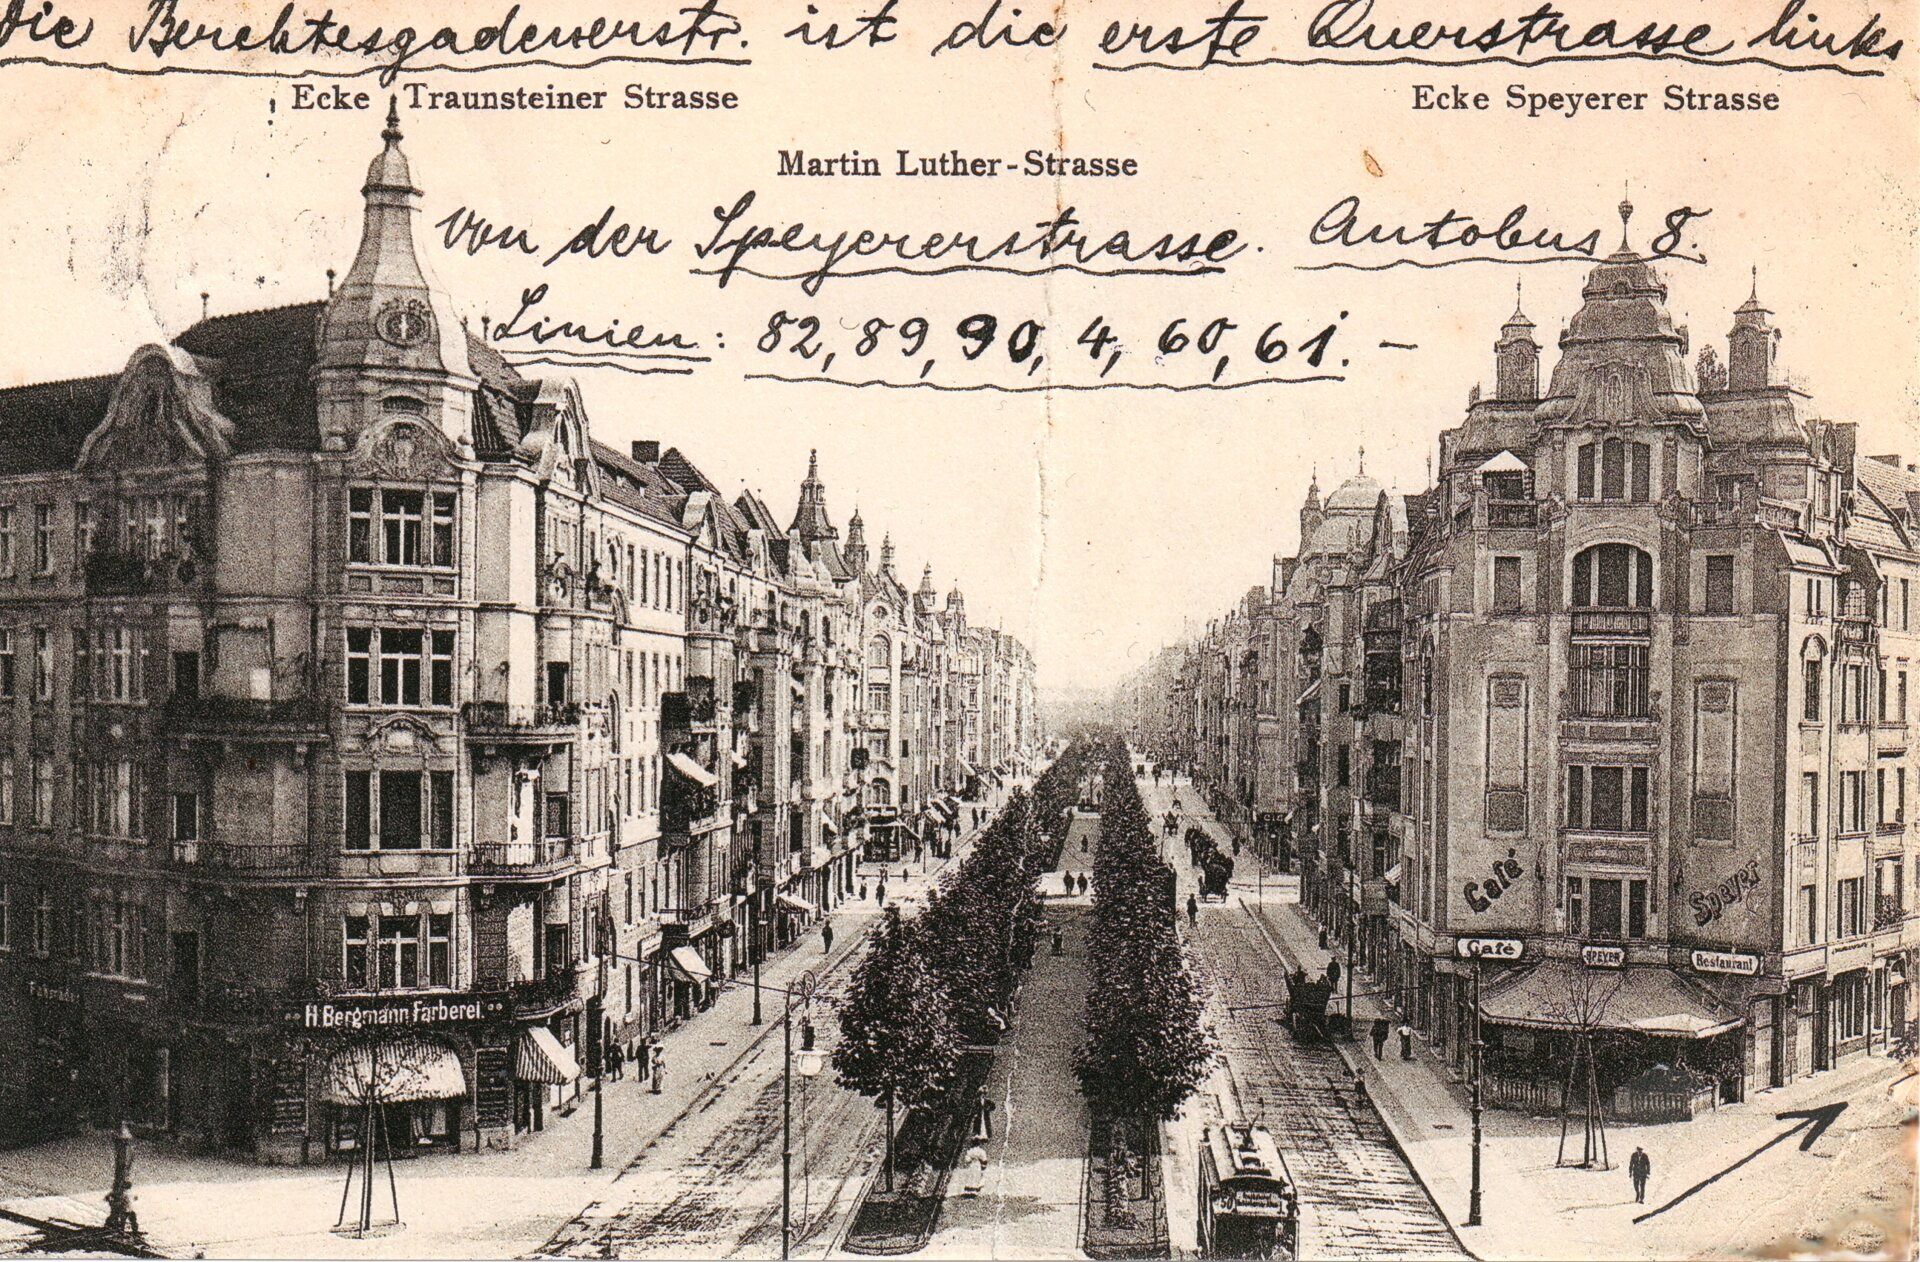 die Berchtesgadenerstr. ist die erste Querstrasse links
Ecke Traunsteiner Strasse
Ecke Speyerer Strasse
Martin Luther-Strasse
von der Speyererstrasse. Autobus 8.
Linien: 82, 89, 90, 4, 60, 61. –
H. Bergmann Färberei
Café
Speyer
Café
SPEYER
Restaurant